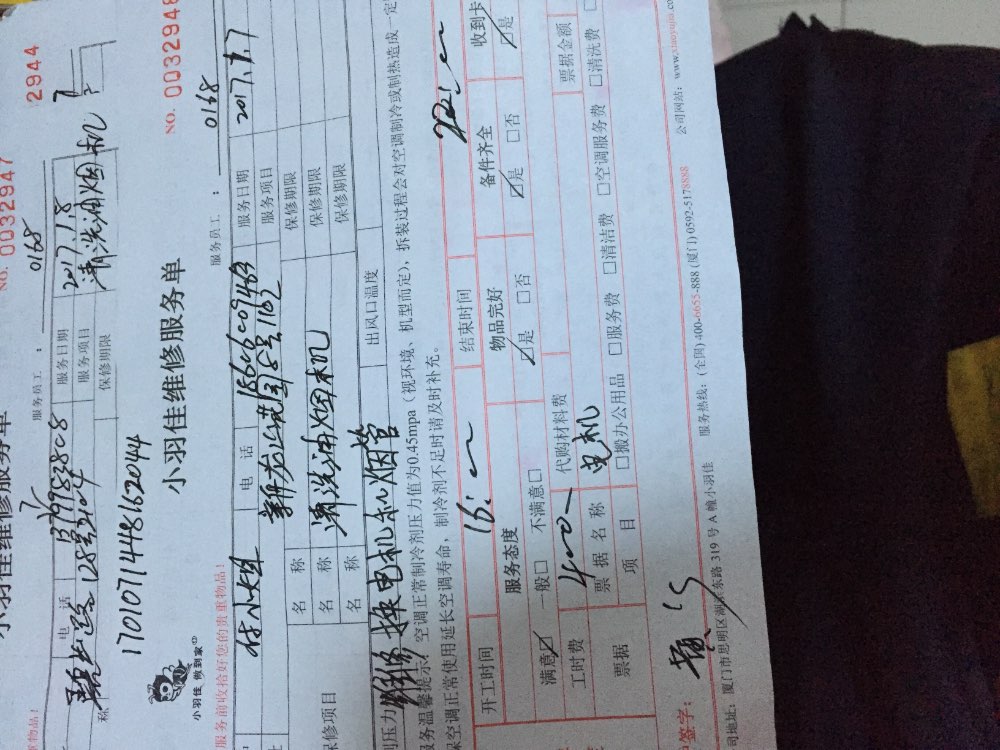 小羽佳维修服务单
NO. 0032947
2944
服务员工： 0168
电 话 服务日期 2017.1.8
128号2104 服务项目 清洗油烟机
称 保修期限
1701071448162044
小羽佳 俺到家
小羽佳维修服务单
NO. 0032948
服务前收拾好您的贵重物品！
服务员工： 0168
林小姐 电 话 服务日期 2017.1.7
服务项目
名 称 保修期限
保修项目 名 称 清洗油烟机 保修期限
名 称 保修期限
换电机和烟管 出风口温度
服务温馨提示：空调正常制冷剂压力值为0.45mpa（视环境、机型而定），拆装过程会对空调制冷或制热造成一定
保空调正常使用延长空调寿命，制冷剂不足时请及时补充。
开工时间 结束时间
服务态度 物品完好 备件齐全 收到卡
满意☑ 一般□ 不满意□ ☑是 □否 ☑是 □否 ☑是
工时费 400 代购材料费
票据名称 电机 票据金额
票据 项 目 □搬办公用品 □服务费 □清洁费 □空调服务费 □清洗费
签字：
司地址：厦门市思明区湖滨东路 319 号 A 幢小羽佳 服务热线：(全国) 400-6655-888 (厦门) 0592-5178888 公司网站：www.xiaoyujia.co